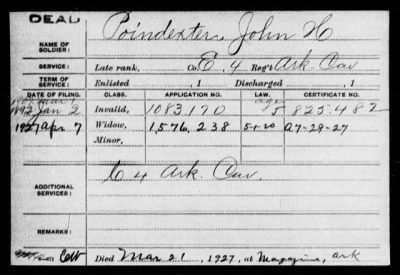 DEAD
NAME OF SOLDIER: Poindexter, John H
SERVICE: Late rank, Co. E, 4 Reg't Ark. Cav
TERM OF SERVICE: Enlisted , 1 Discharged , 1
DATE OF FILING. CLASS. APPLICATION NO. LAW. CERTIFICATE NO.
1892 Jan 2 Invalid, 1083170 age 825.482
1927 Apr 7 Widow, 1,576,238 5-1-20 A7-29-27
Minor,
ADDITIONAL SERVICES: E 4 Ark. Cav.
REMARKS:
Died Mar 21, 1927, at Magazine, Ark